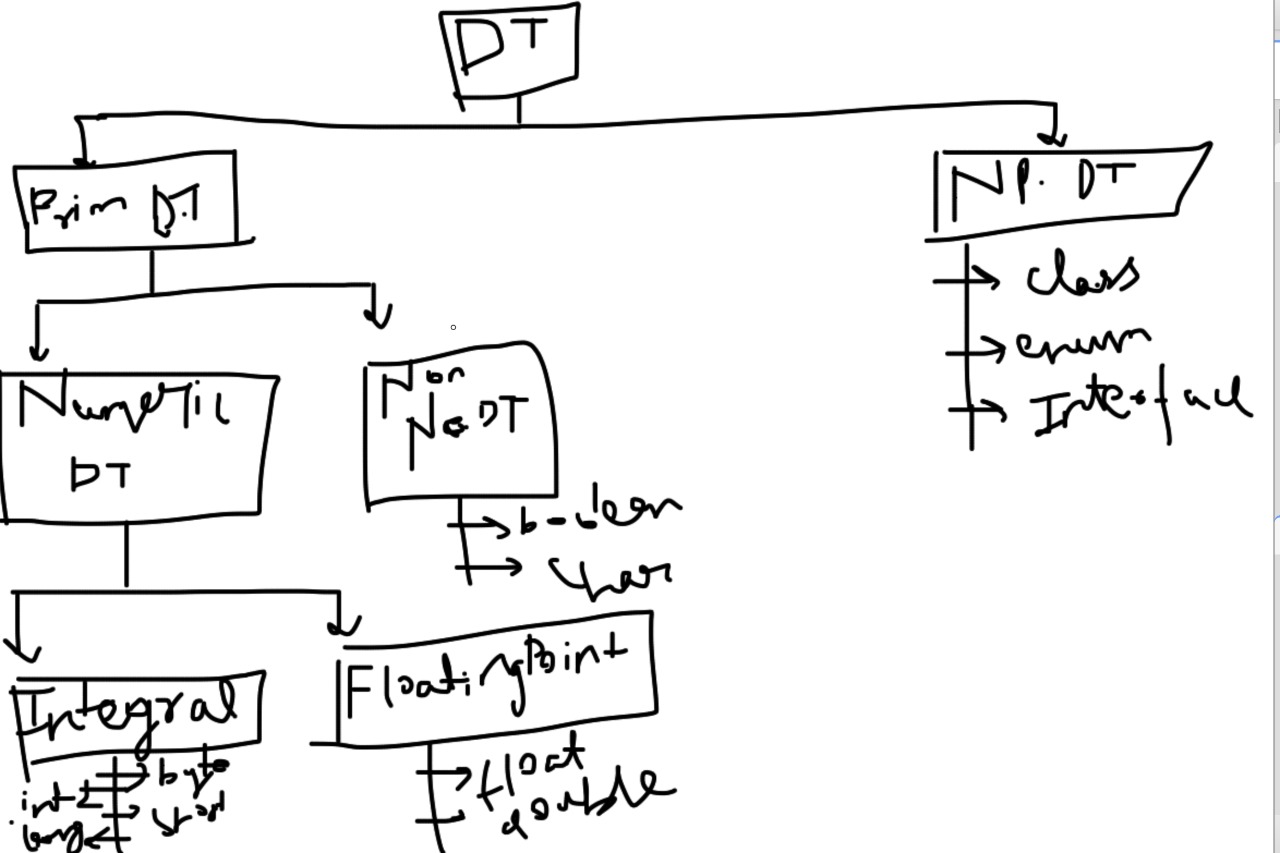 DT
Prim D.T
NP. DT
class
enum
Interface
Numeric
DT
Non
No DT
boolean
char
Integral
byte
short
int
long
Floating Point
float
double